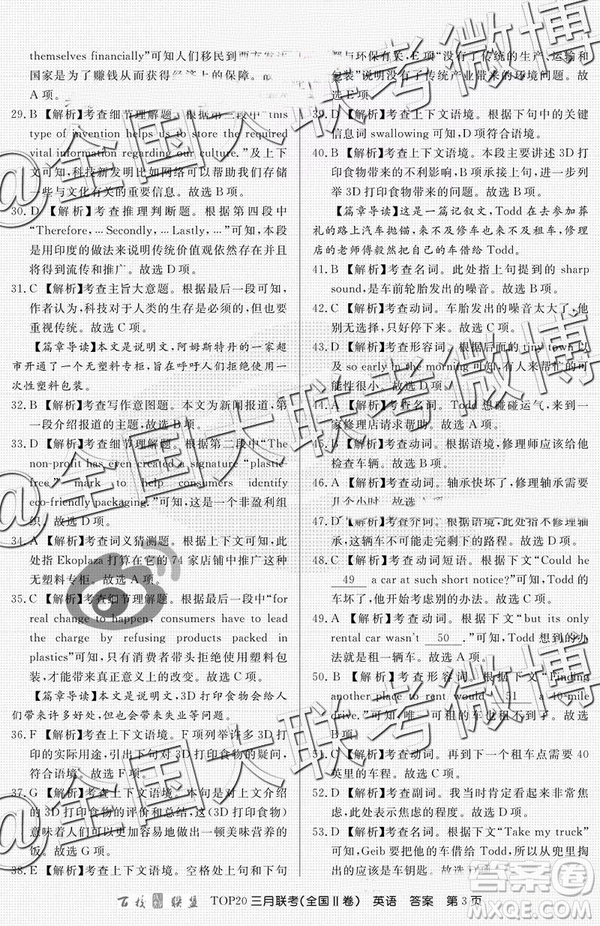 themselves financially”可知人们移民到西方发达
国家是为了赚钱从而获得经济上的保障。故选
A项。
29. B 【解析】考查细节理解题。根据第三段中“this
type of invention helps us to store the required
vital information regarding our culture.”及上下
文可知，科技新发明比如网络可以帮助我们存储
一些与文化有关的重要信息。故选B项。
30. D 【解析】考查推理判断题。根据第四段中
“Therefore, … Secondly, … Lastly, …”可知，本段
是用印度的做法来说明传统价值观依然存在并且
将得到流传和推广。故选D项。
31. C 【解析】考查主旨大意题。根据最后一段可知，
作者认为，科技对于人类的生存是必须的，但更
重视传统。故选C项。
【篇章导读】本文是说明文，阿姆斯特丹的一家超
市开通了一个无塑料专柜，旨在呼吁人们拒绝使用一
次性塑料包装。
32. B 【解析】考查写作意图题。本文为新闻报道，第
一段介绍报道的主题，故选B项。
33. D 【解析】考查细节理解题。根据第二段中“The
non-profit has even created a signature “plastic
free” mark to help consumers identify
eco-friendly packaging.”可知，这是一个非盈利组
织。故选D项。
34. A 【解析】考查词义猜测题。根据上下文可知，此
处指Ekoplaza打算在它的74家店铺中推广这种
无塑料专柜。故选A项。
35. C 【解析】考查细节理解题。根据最后一段中“for
real change to happen, consumers have to lead
the charge by refusing products packed in
plastics”可知，只有消费者带头拒绝使用塑料包
装，才能带来真正意义上的改变。故选C项。
【篇章导读】本文是说明文，3D打印食物会给人
们带来许多好处，但也会带来失业等问题。
36. F 【解析】考查上下文语境。F项列举许多3D打
印的实际用途，引出下句对3D打印食物的疑问，
符合语境。故选F项。
37. G 【解析】考查上下文语境。G项是对本段中
的3D打印食物的评价和总结，这(3D打印食物)
意味着人们可以更加容易地做出一顿美味营养的
饭。故选G项。
38. E 【解析】考查上下文语境。根据下文可知，本段
与环保有关，E项“没有了传统的生产、运输和
包装”说明没有了传统产业带来的环境问题。故
选E项。
39. D 【解析】考查上下文语境。根据下句中的关键
信息词swallowing可知，D项符合语境。
40. B 【解析】考查上下文语境。本段主要讲述3D打
印食物带来的不利影响，B项承接上句，进一步列
举3D打印食物带来的问题。故选B项。
【篇章导读】这是一篇记叙文，Todd在去参加葬
礼的路上汽车抛锚，来不及修车也来不及租车，修车
店的老师傅毅然把自己的车借给Todd。
41. B 【解析】考查名词。此处指上句提到的sharp
sound，是车前轮胎发出的噪音。故选B项。
42. C 【解析】考查动词。车胎发出的噪音太大了，他
别无选择，只好停车。故选C项。
43. C 【解析】考查形容词。根据后面的tiny town以
及so early in the morning可知，有人来帮忙的可
能性很小。故选C项。
44. A 【解析】考查名词。Todd想碰碰运气，来到一
家修理店请求帮助。故选A项。
45. D 【解析】考查动词。根据语境，修理师应该给他
检查车辆。故选D项。
46. A 【解析】考查动词。轴承快坏了，修车需要
几个小时。故选A项。
47. D 【解析】考查介词。根据语境可知，此处指不能
用这辆车来完成剩下的路程。故选D项。
48. C 【解析】考查动词短语。根据下文“Could he
49 a car at such short notice?”可知，Todd的
车坏了，他开始考虑别的办法。故选C项。
49. A 【解析】考查动词。根据下文“but its only
rental car wasn't 50 .”可知，Todd想到的办
法就是租一辆车。故选A项。
50. B 【解析】考查形容词。根据下文“Finding
another place to rent would 51 a 40-mile
drive.”可知，此处指租不到车。故选B项。
51. C 【解析】考查动词。再找到下一个租车点需要40
英里的车程。故选C项。
52. A 【解析】考查动词。我当时肯定看起来非常焦
虑，此处指表现出焦虑。故选A项。
53. D 【解析】考查名词。根据下文“Take my truck”
可知，Geib要把他的车借给Todd，所以从兜里掏
出的应该是车钥匙。故选D项。
百校 联盟 TOP20 三月联考(全国Ⅱ卷) 英语 答案 第3页
@全国大联考微博
@全国大联考微博